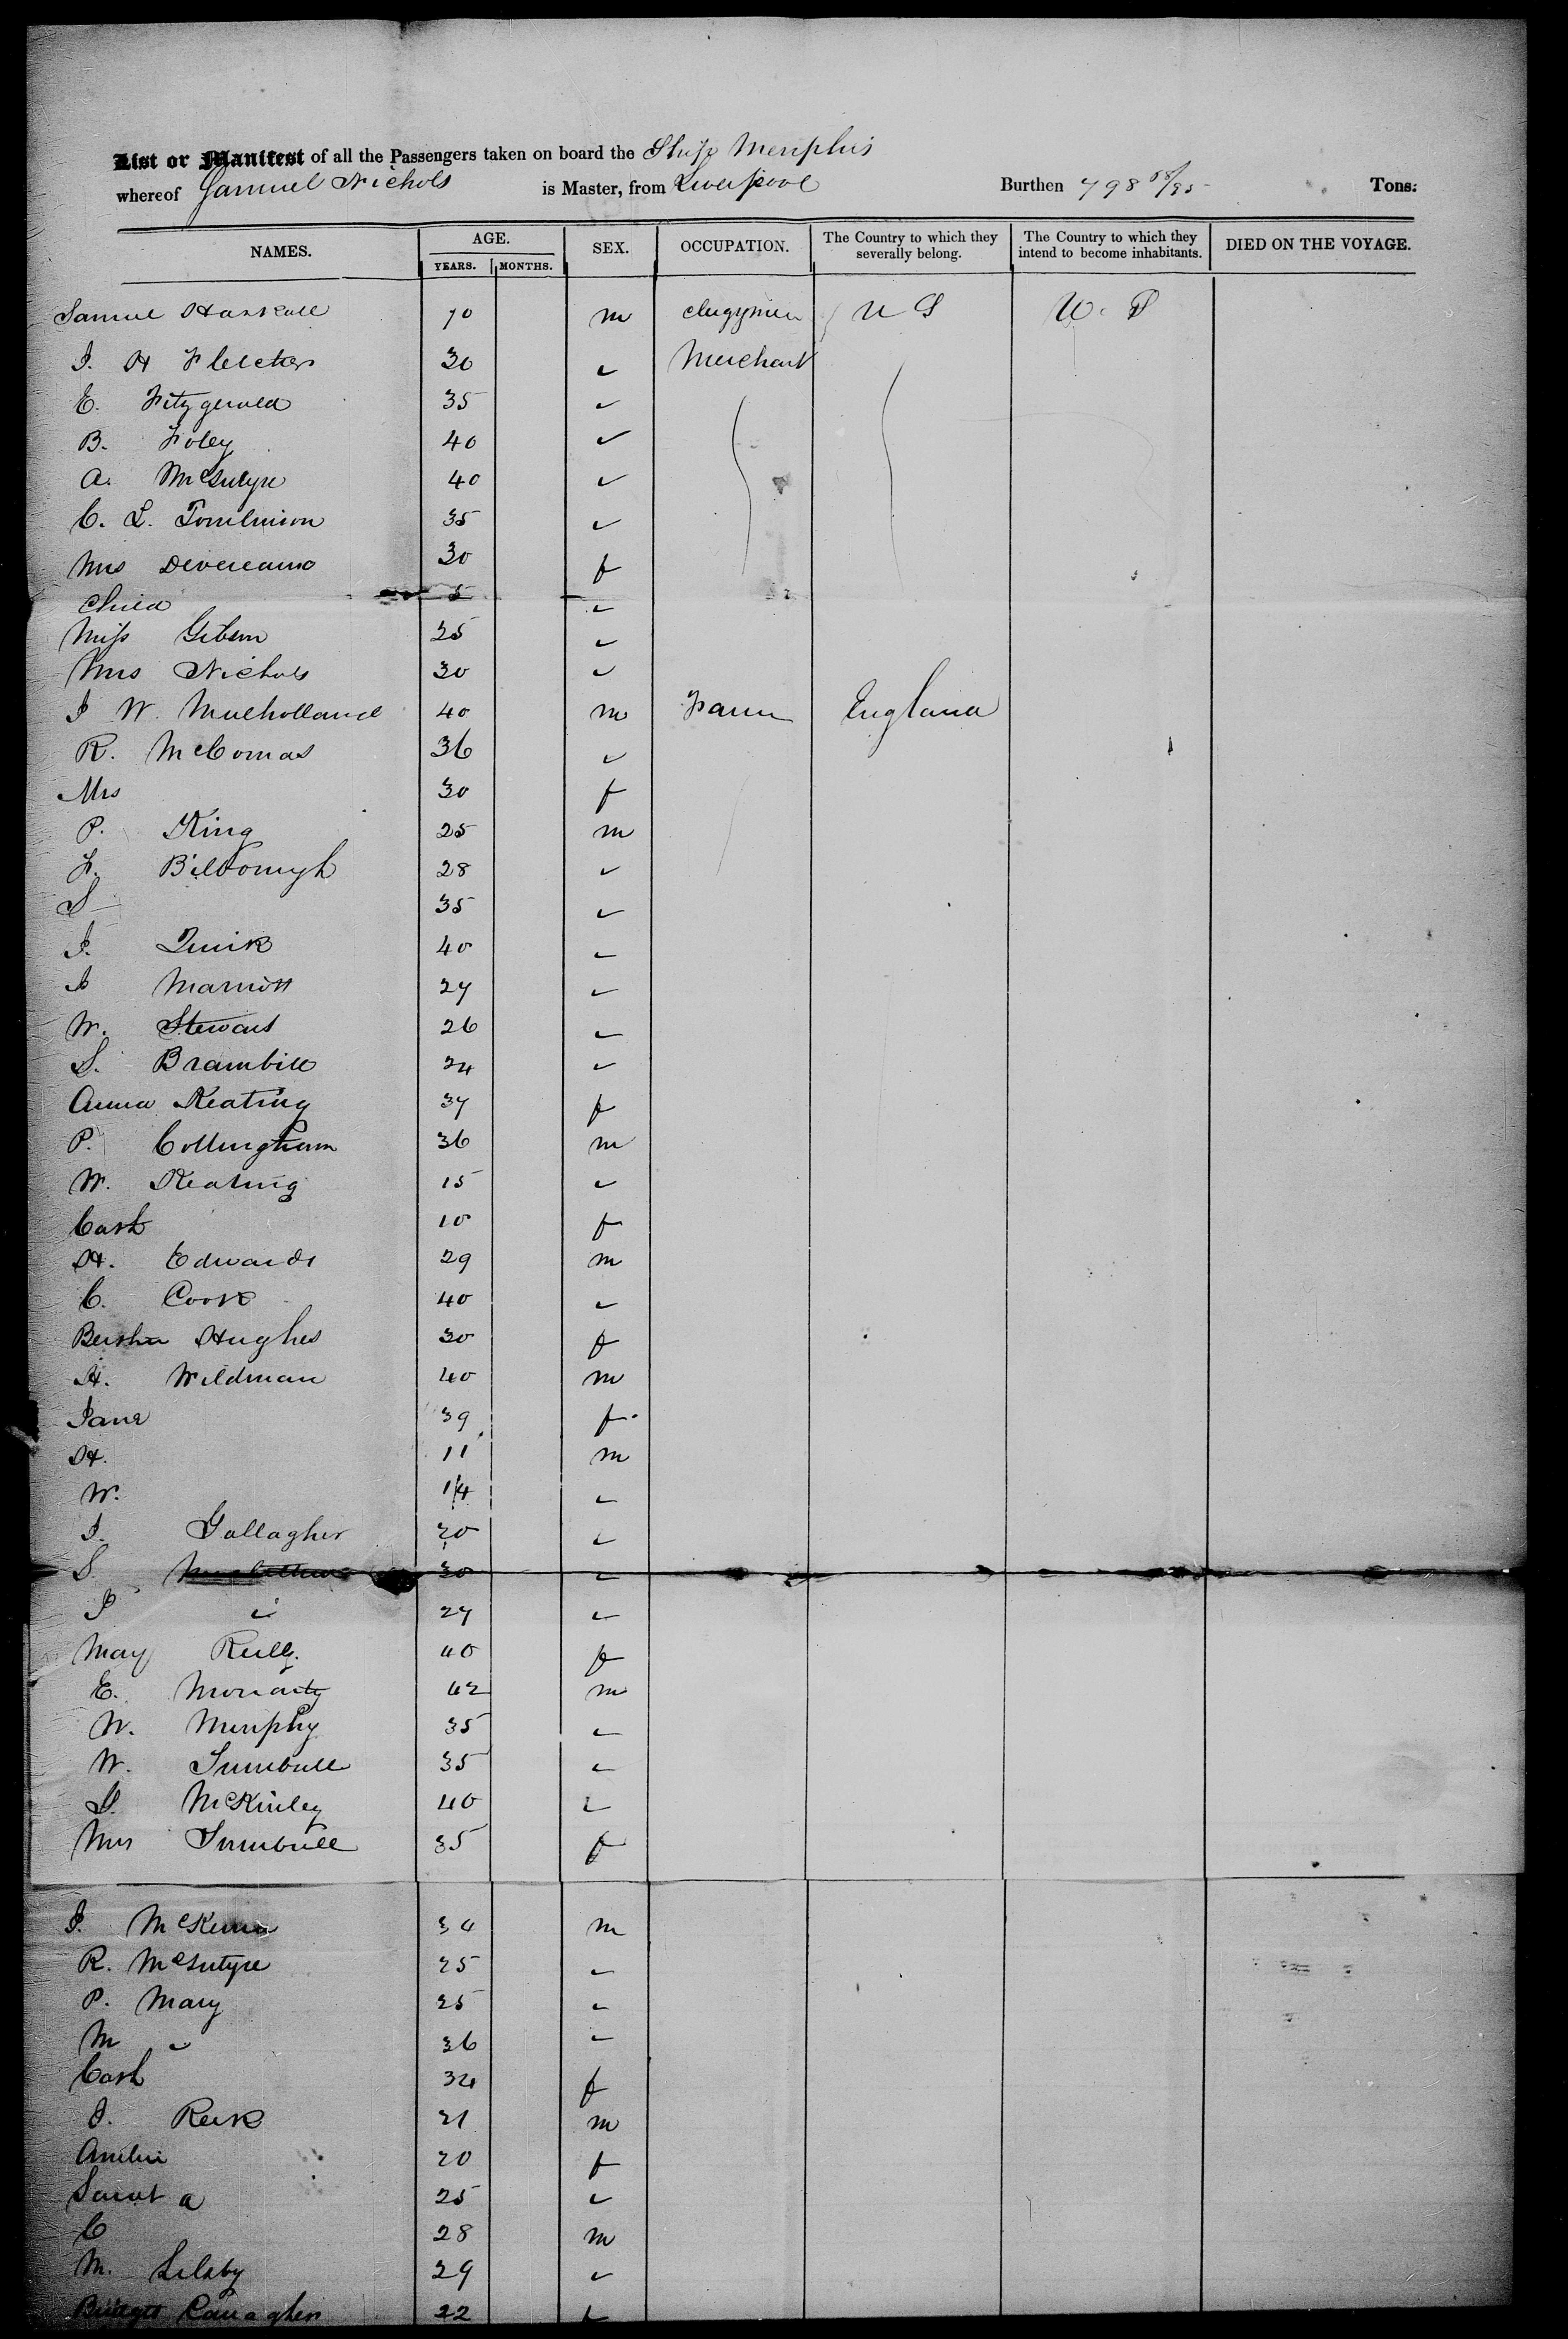 List or Manifest of all the Passengers taken on board the Ship Memphis
whereof Samuel Nichols is Master, from Liverpool Burthen 798 /95 Tons.
NAMES. AGE. SEX. OCCUPATION. The Country to which they severally belong. The Country to which they intend to become inhabitants. DIED ON THE VOYAGE.
YEARS. MONTHS.
Samuel Haskall 70 m clergyman U S U. S
J. H Fletcher 30 " Merchant
E. Fitzgerald 35 "
B. Foley 40 "
A. McIntyre 40 "
C. L. Tomlinson 35 "
Mrs Devereaux 30 f
Child 5 "
Miss Gibson 25 "
Mrs Nichols 30 "
J W. Mulholland 40 m Farm England
R. McComas 36 "
Mrs 30 f
P. King 25 m
F. Bilbourgh 28 "
S 35 "
J. Quirk 40 "
J Marriott 27 "
W. Stewart 26 "
S. Brambill 34 "
Anna Keating 37 f
P. Collingham 36 m
W. Keating 15 "
Cath 10 f
H. Edwards 29 m
C. Cook 40 "
Hughes 30 f
H. Wildman 40 m
Jane 39 f
H. 11 m
W. 14 "
J. Gallagher 20 "
S. 30 "
P " 27 "
Mary Reilly. 40 f
E. Moriarty 42 m
W. Murphy 35 "
W. Turnbull 35 "
McKinley 40 "
Mrs Turnbull 35 f
J. McKenna 34 m
R. McIntyre 25 "
P. Mary 25 "
M " 36 "
Cath 34 f
J. 21 m
20 f
Sarah a 25 "
C 28 m
M. 29 "
Bridget 22 f